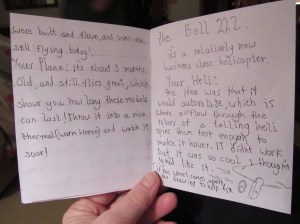 were built and flown, and some are
still flying today!
Your Plane: its about 3 months
old, and still flies great, which
Shows you how long these models
can last! Throw it into a nice
thermal (warm breeze) and watch it
soar!
The Bell 222
Is a relatively new
business class helicopter.
Your Heli:
the idea was that it
would autorotate, which is
where airflow through the
rotor of a falling heli
spins them fast enough to
make it hover. IT didn't work
but it was so cool, I thought
you'd like it.
if the wheel comes apart